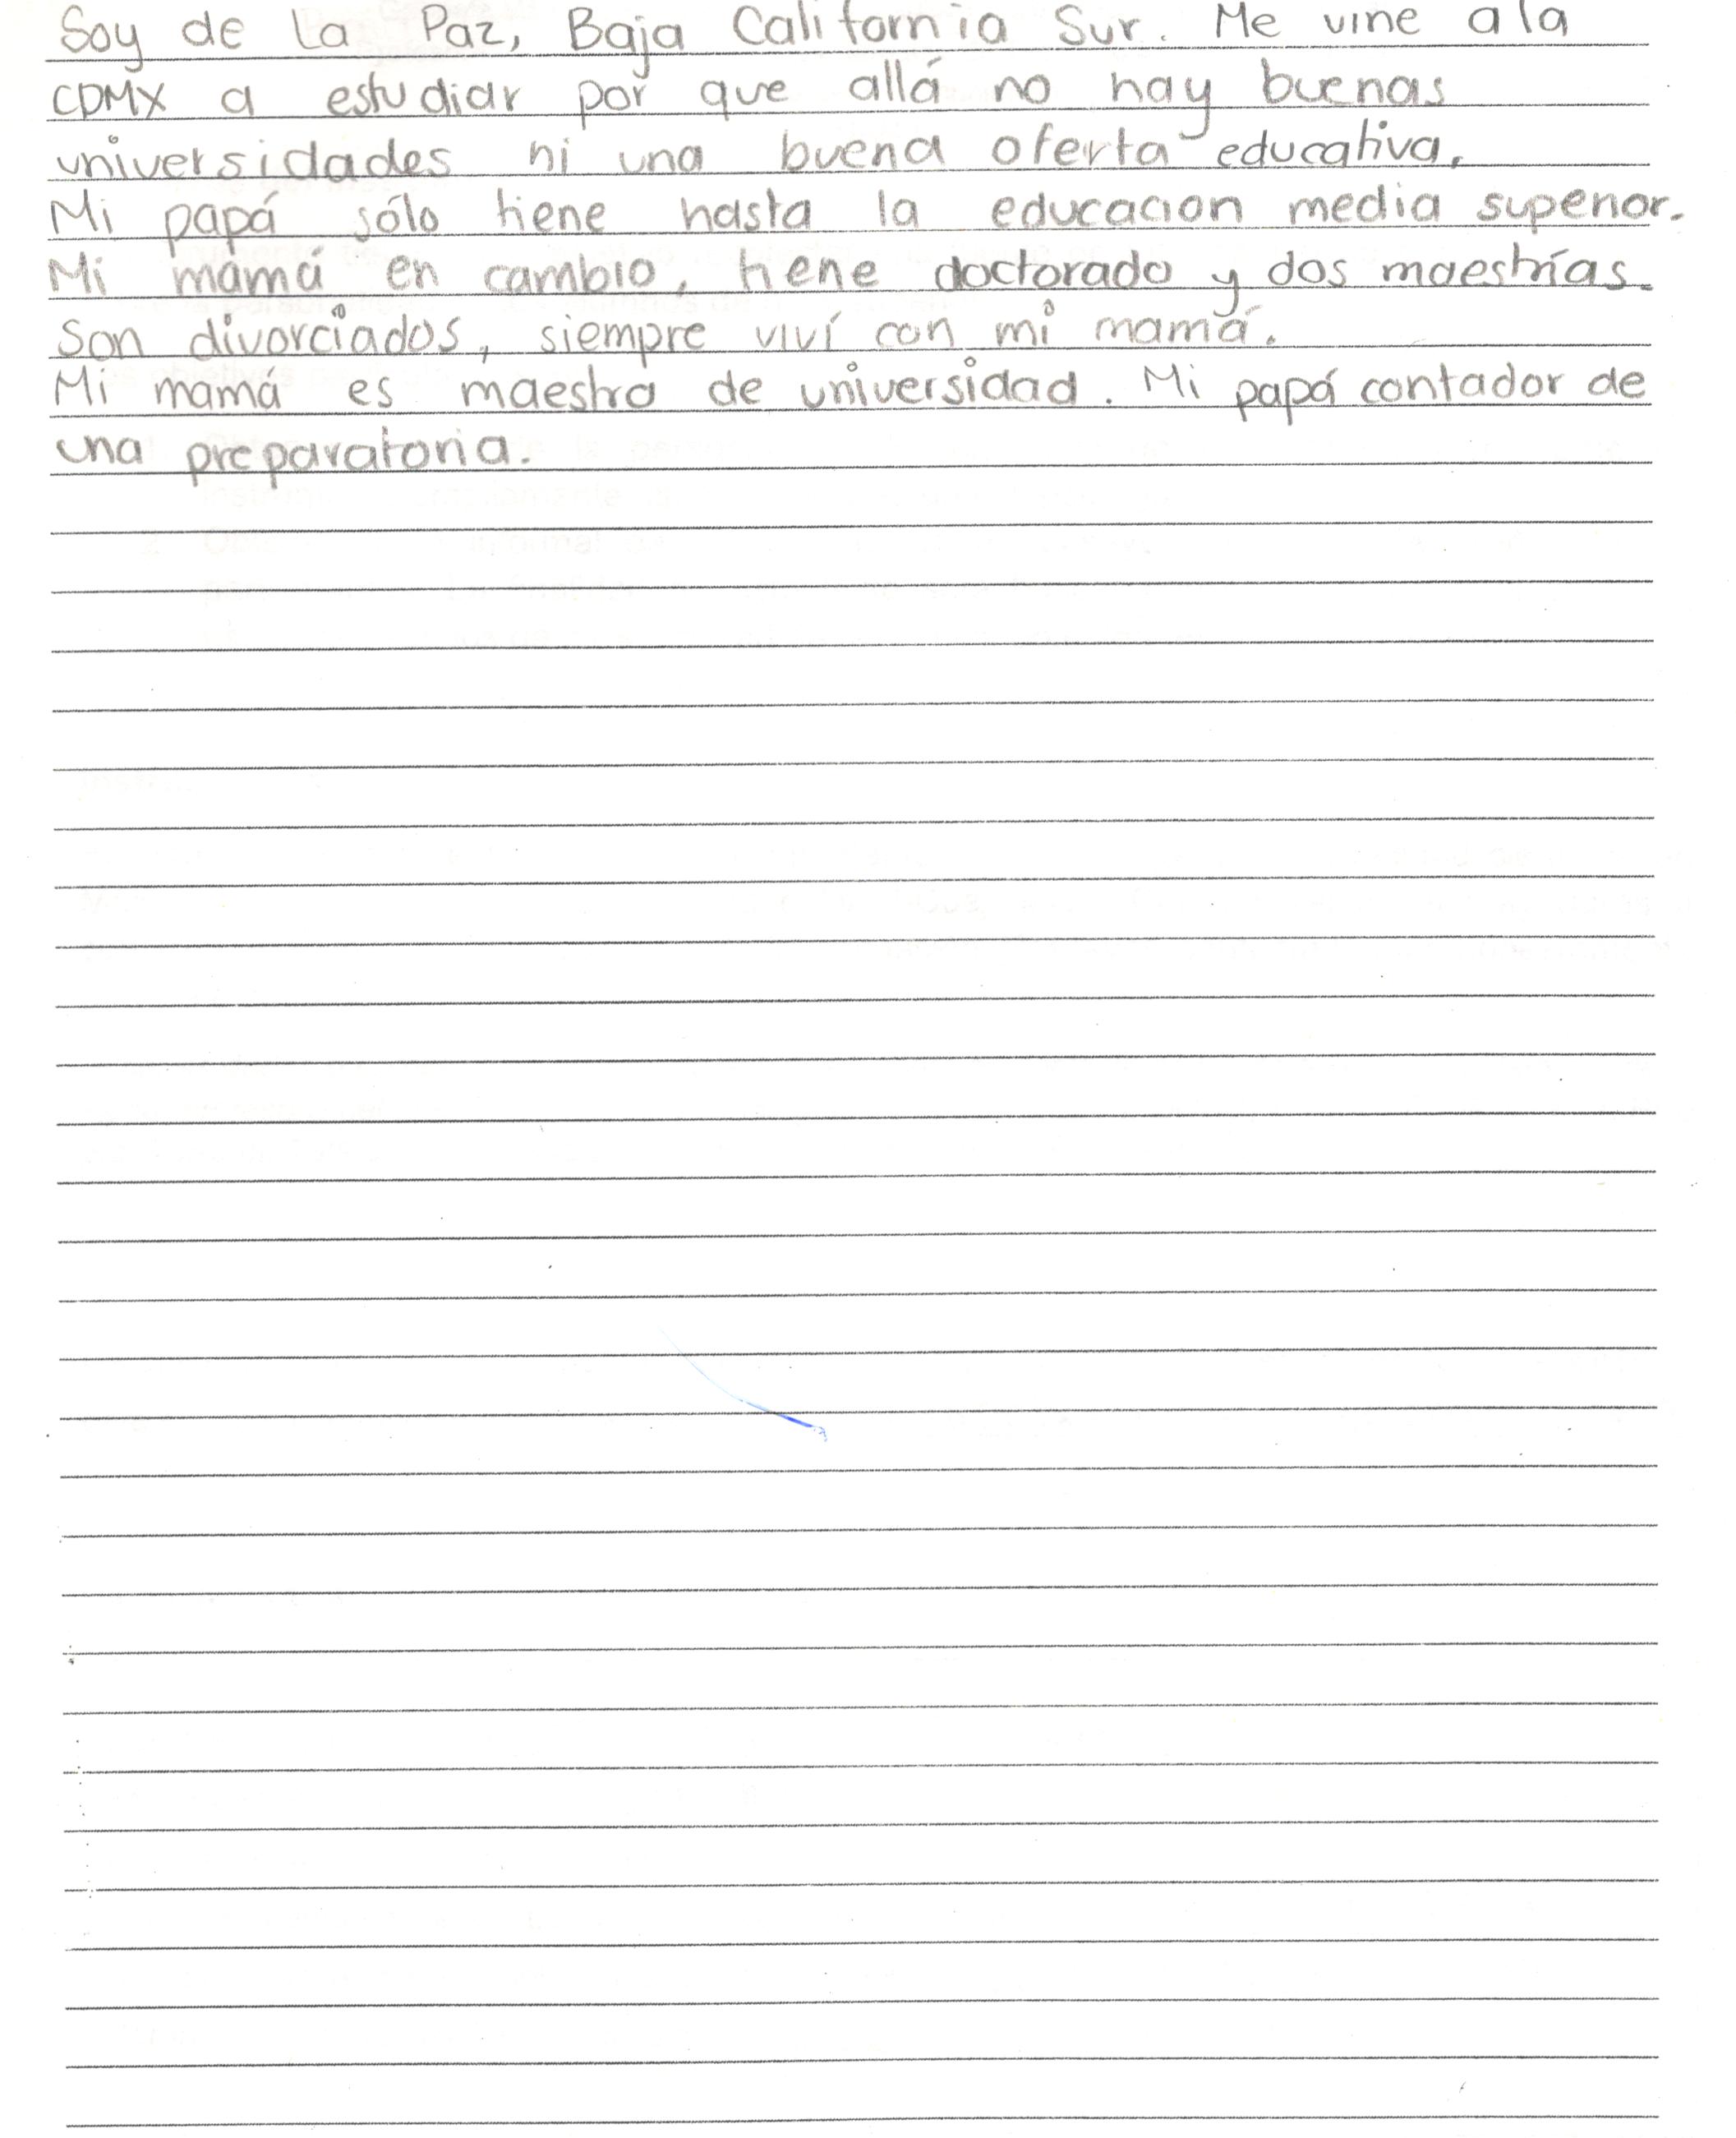 Soy de la Paz, Baja California Sur. Me vine a la
CDMX a estudiar por que allá no hay buenas
universidades ni una buena oferta educativa.
Mi papá sólo tiene hasta la educacion media superior.
Mi mamá en cambio, tiene doctorado y dos maestrías.
Son divorciados, siempre viví con mi mamá.
Mi mamá es maestra de universidad. Mi papá contador de
una preparatoria.